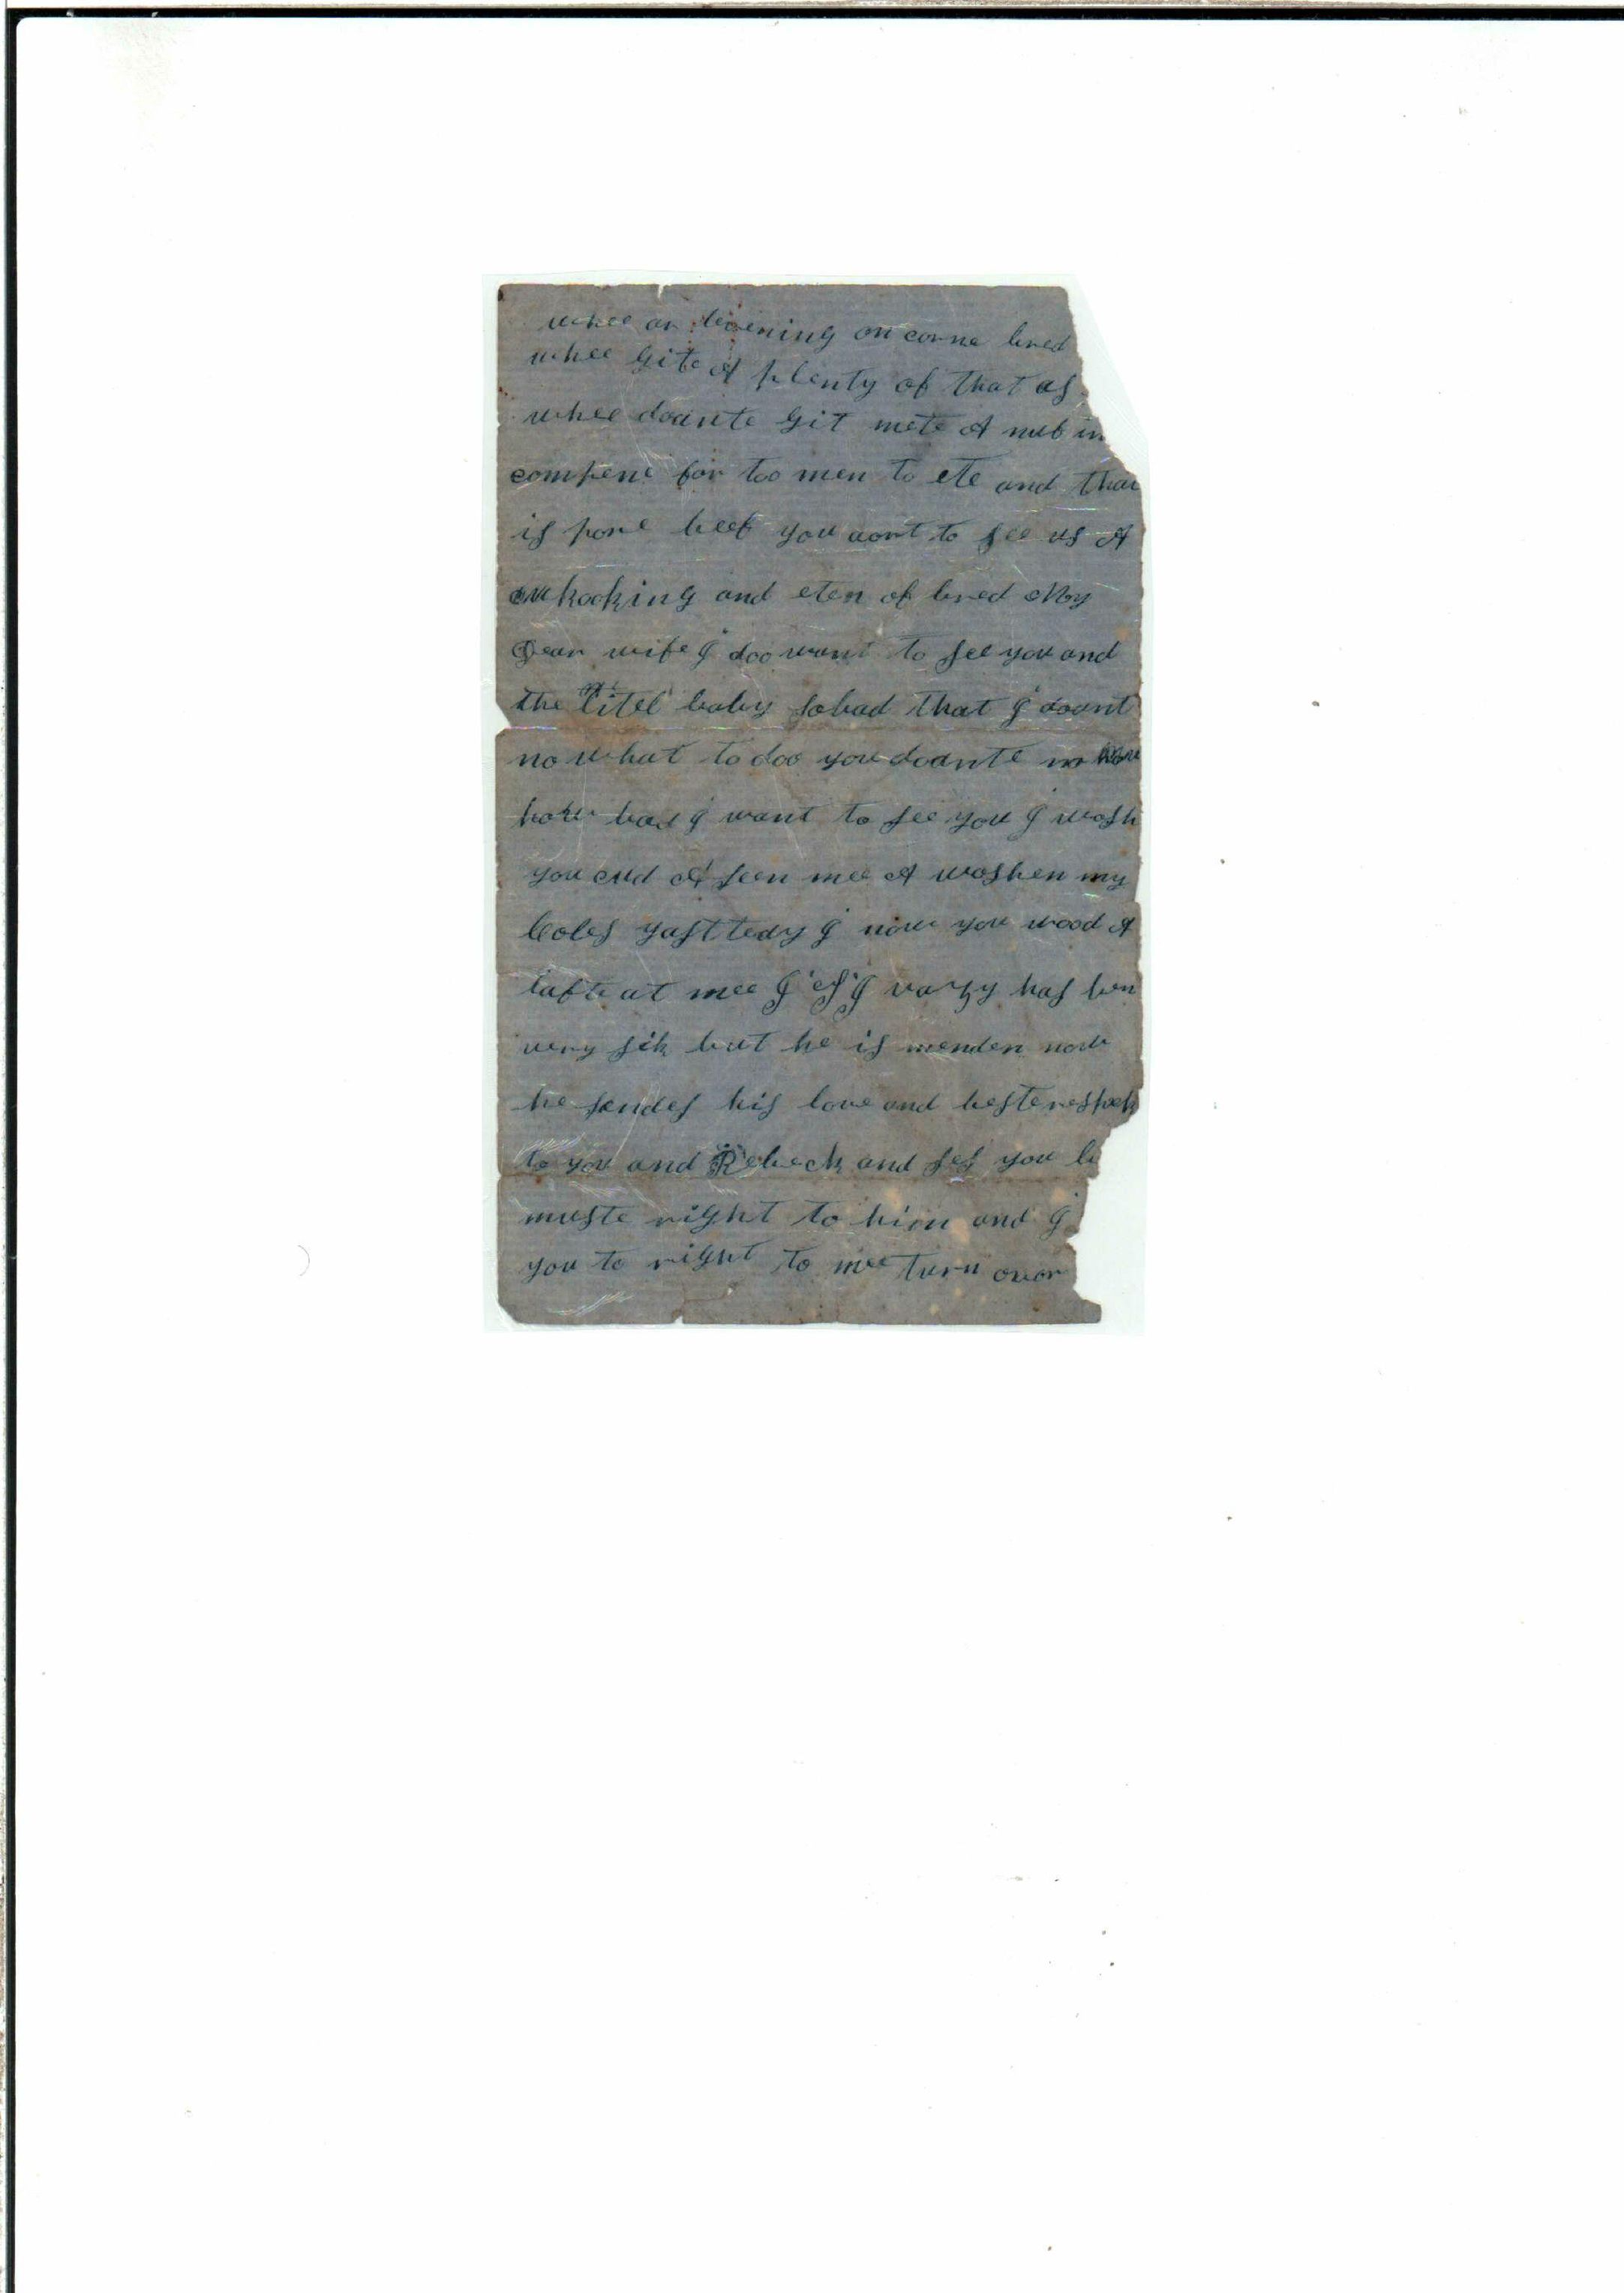 whee ar levening on corne bred
whee Gite A plenty of that as
whee doante Git mete A nuf in
compene for too men to ete and that
is pore beef you aort to see us A
kooking and eten of bred My
Dear wife I doo want to see you and
the litel baby so bad that I doant
no what to doo you doante no
how bad I want to see you I wosh
you cud A seen mee A woshen my
Coles yastteday I now you wood A
lafte at mee has ben
very sik but he is menden now
he sendes his love and beste respek
to you and Rebeck and ses you
muste right to him and I
you to right to mee turn over